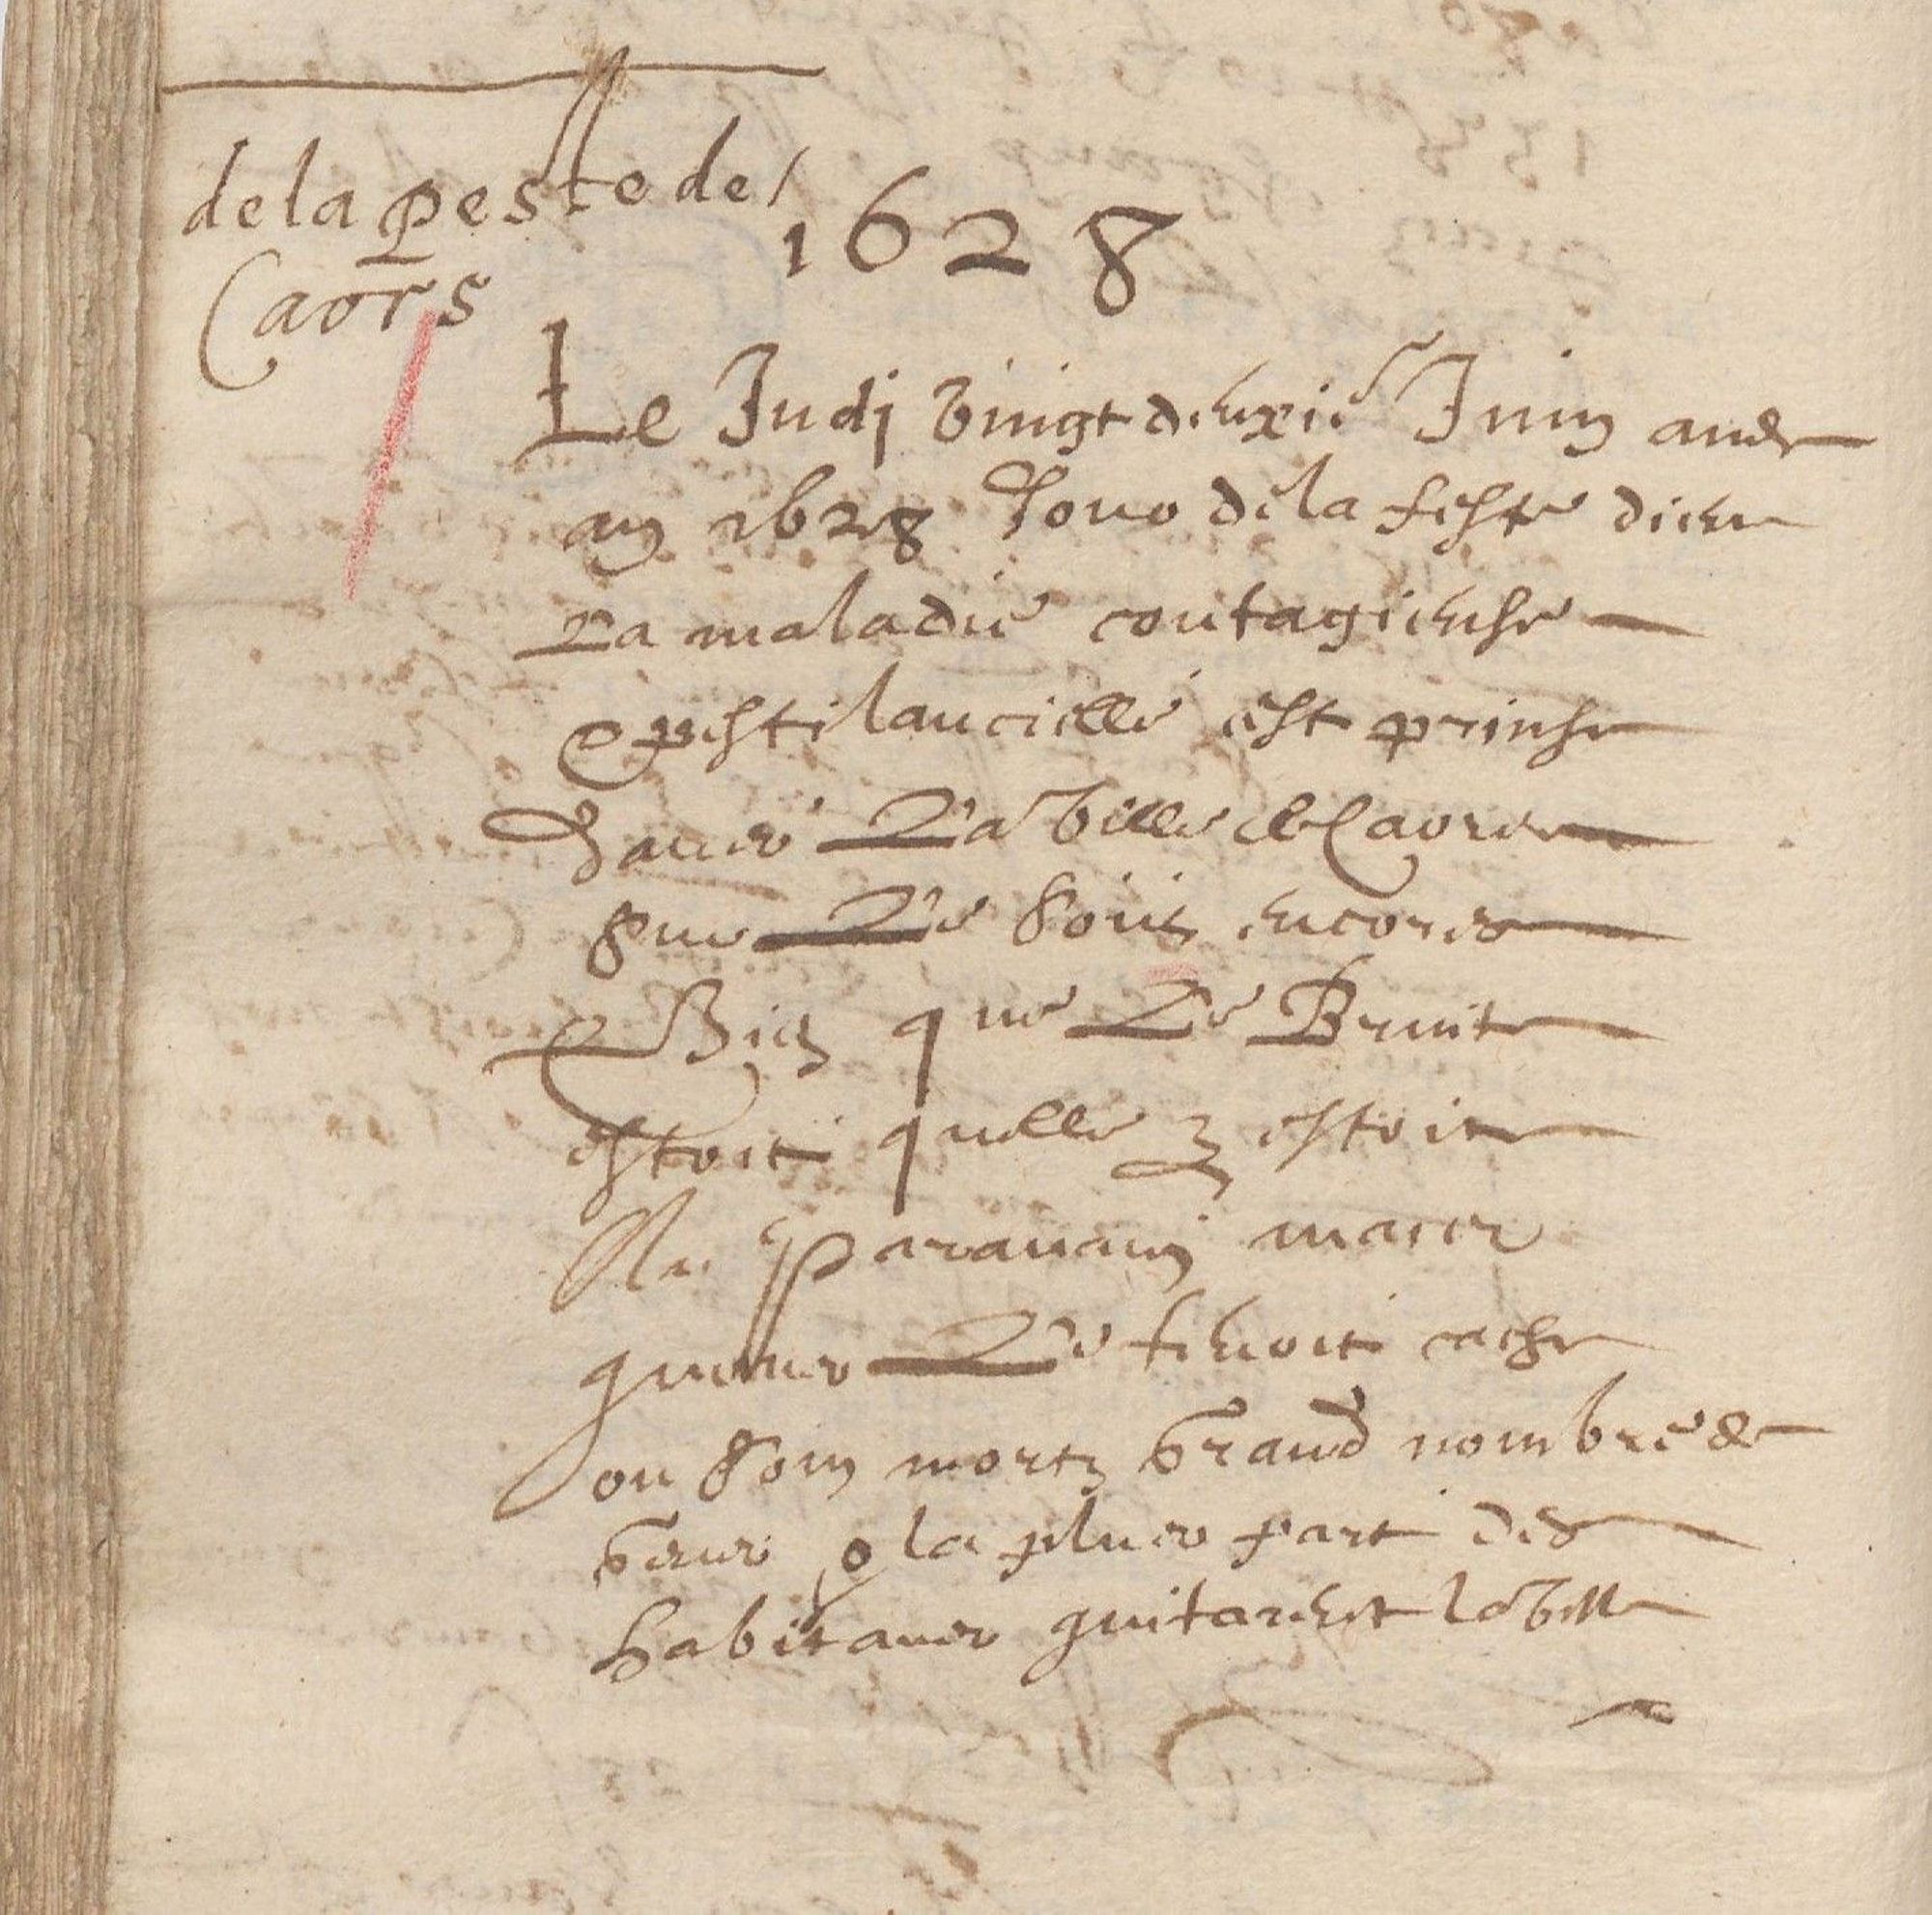 de la peste de
Caors
1628
Le Judj vingt deuxie Juin aud
an 1628 Jour de la feste dieu
La maladie contagieuse
e pestilancielle est prinse
dans La ville de Caors
que Le soir encores
e Bien que Le Bruit
estoit quelle y estoit
Au paravant mais
quon Le tenoit cache
ou son mortz grand nombre de
gens e la plus part des
habitans quitarent la ville